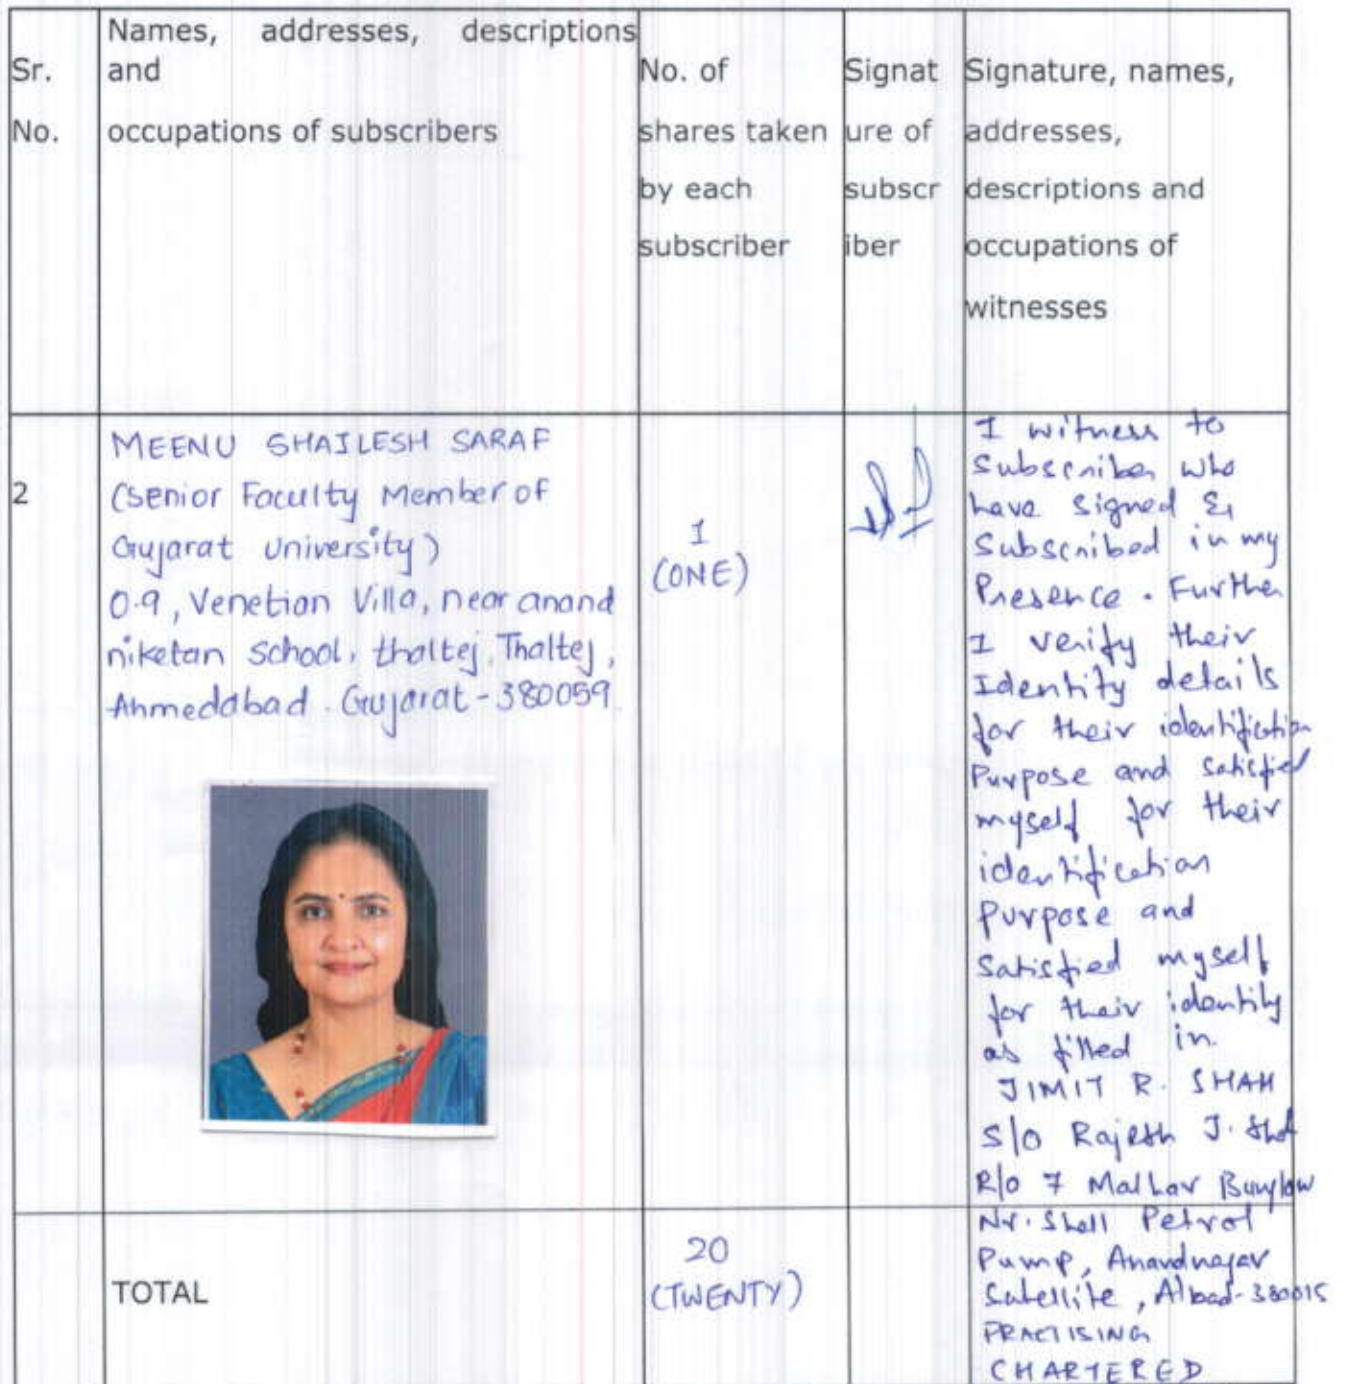 Sr.
No.
Names, addresses, descriptions
and
occupations of subscribers
No. of
shares taken
by each
subscriber
Signat
ure of
subscr
iber
Signature, names,
addresses,
descriptions and
occupations of
witnesses
2
MEENU SHAILESH SARAF
(Senior Faculty Member of
Gujarat University)
0.9, Venetian Villa, near anand
niketan School, thaltej, Thaltej,
Ahmedabad. Gujarat - 380059.
1
(ONE)
I witness to
Subscriber who
have signed &
Subscribed in my
Presence. Further
I verify their
Identity details
for their identification
Purpose and satisfied
myself for their
identification
Purpose and
satisfied myself
for their identity
as filled in.
JIMIT R. SHAH
S/o Rajesh J. Shah
R/o 7 Malhar Bunglow
Nr. Shell Petrol
Pump, Anandnagar
Satellite, A'bad-380015
PRACTISING
CHARTERED
TOTAL
20
(TWENTY)